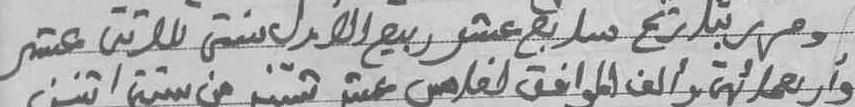 وحرر بتاريخ سابع عشر ربيع الاول سنة ثلاثة عشر
وأربعمائة وألف الموافق لخامس عشر شتنبر من سنة اثنين